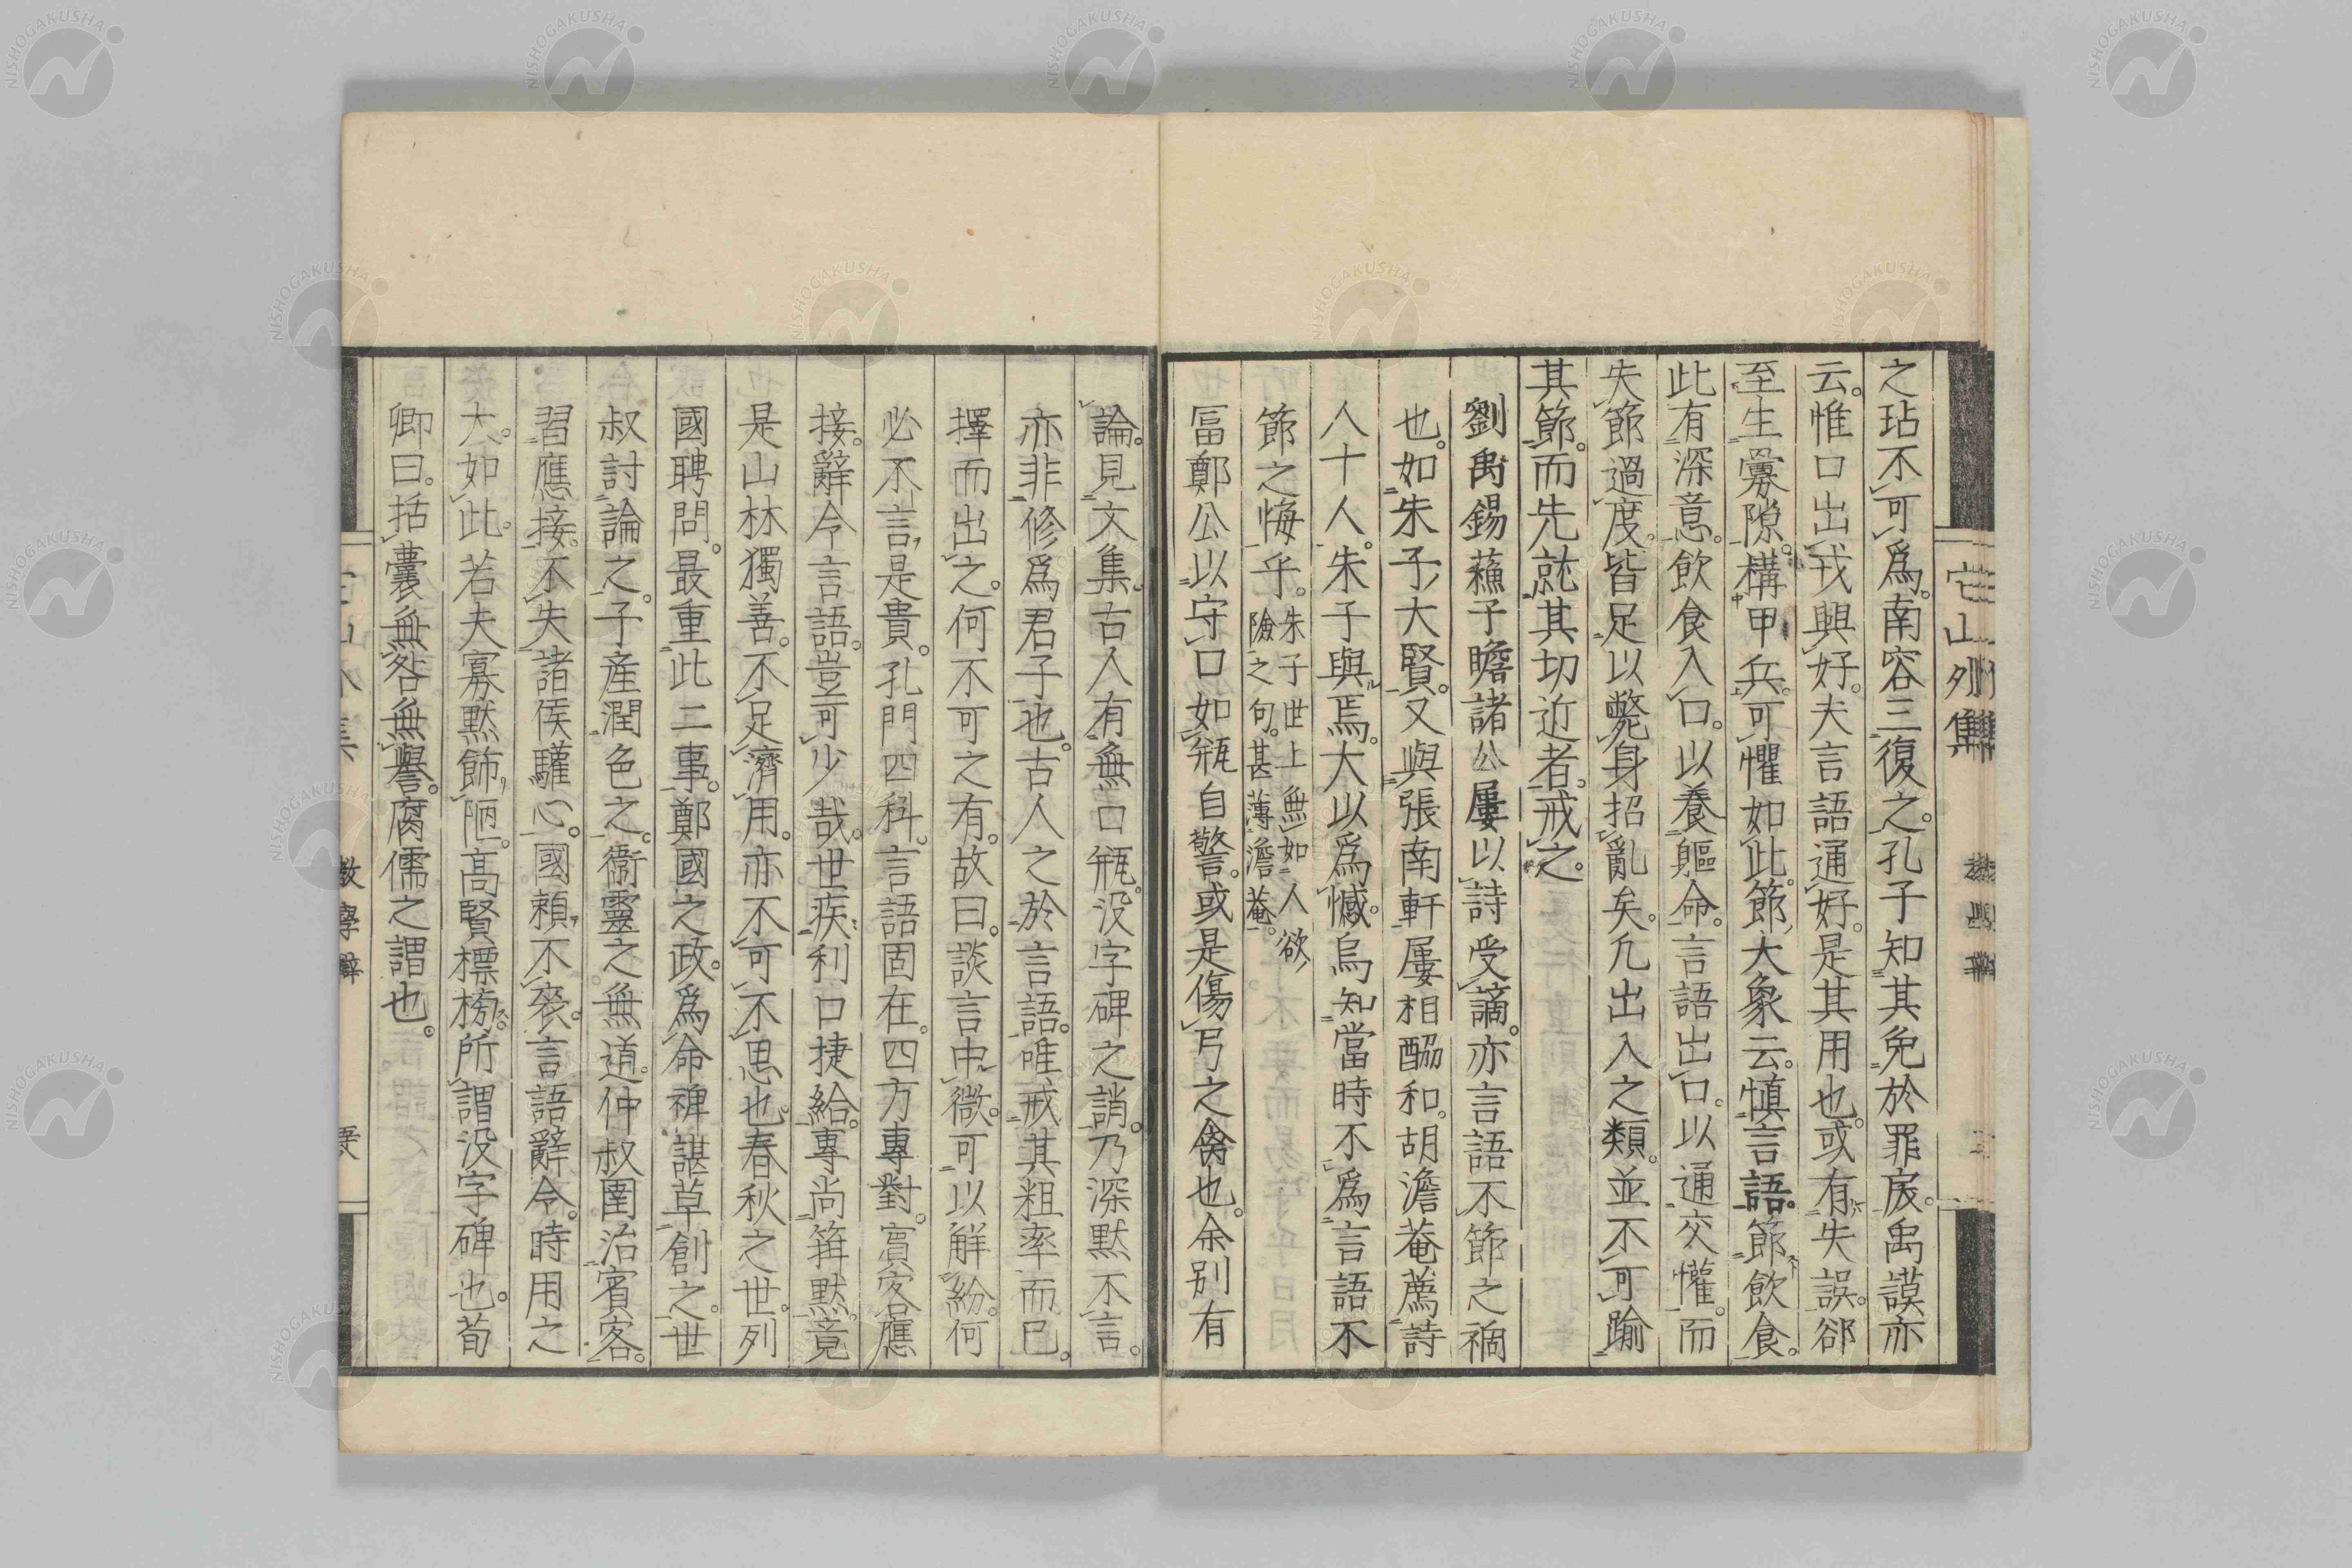 之玷不可爲。南容三復之。孔子知其免於罪戾。禹謨亦
云。惟口出戎興好。夫言語通好。是其用也。或有失誤。郤
至生釁隙。構甲兵。可懼如此。節大象云。慎言語。節飲食。
此有深意。飲食入口。以養軀命。言語出口。以通交懽。而
失節過度。皆足以斃身招亂矣。凡出入之類。並不可踰
其節。而先就其切近者。戒之。
劉禹錫蘓子瞻諸公屢以詩受謫。亦言語不節之禍
也。如朱子大賢。又與張南軒屢相酬和。胡澹菴薦詩
人十人。朱子與焉。大以爲憾。烏知當時不爲言語不
節之悔乎。
朱子世上無如人欲
險之句。甚薄澹菴。
富鄭公以守口如瓶自警。或是傷弓之禽也。余別有
論。見文集。古人有無口瓶。没字碑之誚。乃深默不言。
亦非修爲君子也。古人之於言語。唯戒其粗率而已。
擇而出之。何不可之有。故曰。談言中微。可以解紛。何
必不言是貴。孔門四科。言語固在。四方專對。賓客應
接。辭令言語。豈可少哉。世疾利口捷給。專尚箝默。竟
是山林獨善。不足濟用。亦不可不思也。春秋之世。列
國聘問。最重此二事。鄭國之政。爲命裨諶草創之。世
叔討論之。子產潤色之。衞靈之無道。仲叔圉治賓客。
習應接。不失諸侯驩心。國賴不喪。言語辭令。時用之
大。如此。若夫寡默飾陋。高賢標榜。所謂没字碑也。荀
卿曰。括囊無咎無譽。腐儒之謂也。